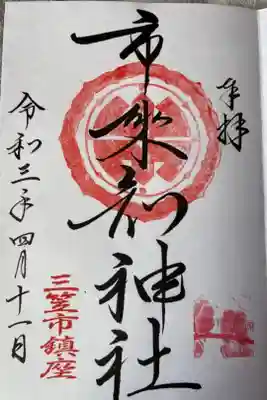 奉拝
市来知神社
令和三年四月十一日
三笠市鎮座